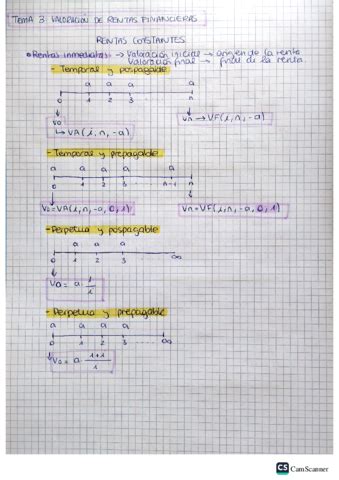 TEMA 3: VALORACIÓN DE RENTAS FINANCIERAS
RENTAS CONSTANTES
Rentas inmediatas: → Valoración inicial → origen de la renta
Valoración final → final de la renta
- Temporal y pospagable
a a a a
0 1 2 3 n
V0 Vn → VF(i,n,-a)
↳ VA(i,n,-a)
- Temporal y prepagable
a a a a a
0 1 2 3 n-1 n
V0=VA(i,n,-a,0,1) Vn=VF(i,n,-a,0,1)
- Perpetua y pospagable
a a a
0 1 2 3 ∞
V0 = a · 1/i
- Perpetua y prepagable
a a a a
0 1 2 3 ∞
V0 = a · 1+i/i
CS CamScanner